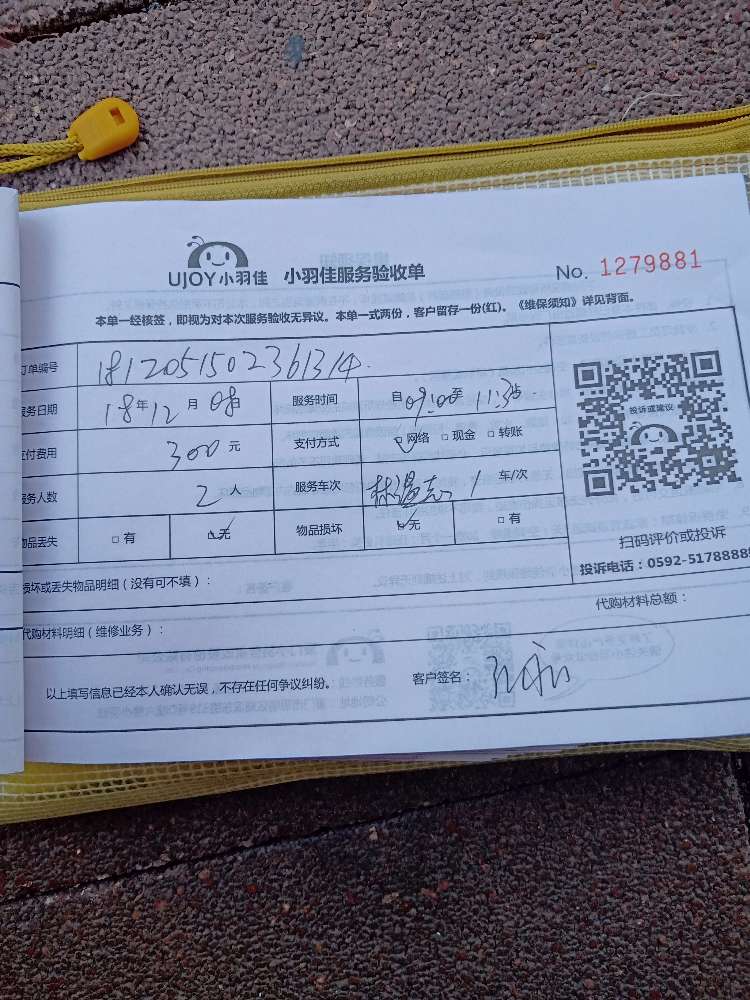 UJOY小羽佳 小羽佳服务验收单 No. 1279881
本单一经核签，即视为对本次服务验收无异议。本单一式两份，客户留存一份(红)。《维保须知》详见背面。
订单编号 1812051502361314
服务日期 18年12月08日 服务时间 自09:00至11:30
支付费用 300元 支付方式 ☑网络 □现金 □转账
服务人数 2人 服务车次 1 车/次
物品丢失 □有 ☑无 物品损坏 ☑无 □有
投诉或建议
扫码评价或投诉
投诉电话：0592-5178888
损坏或丢失物品明细（没有可不填）：
代购材料明细（维修业务）： 代购材料总额：
以上填写信息已经本人确认无误，不存在任何争议纠纷。 客户签名：